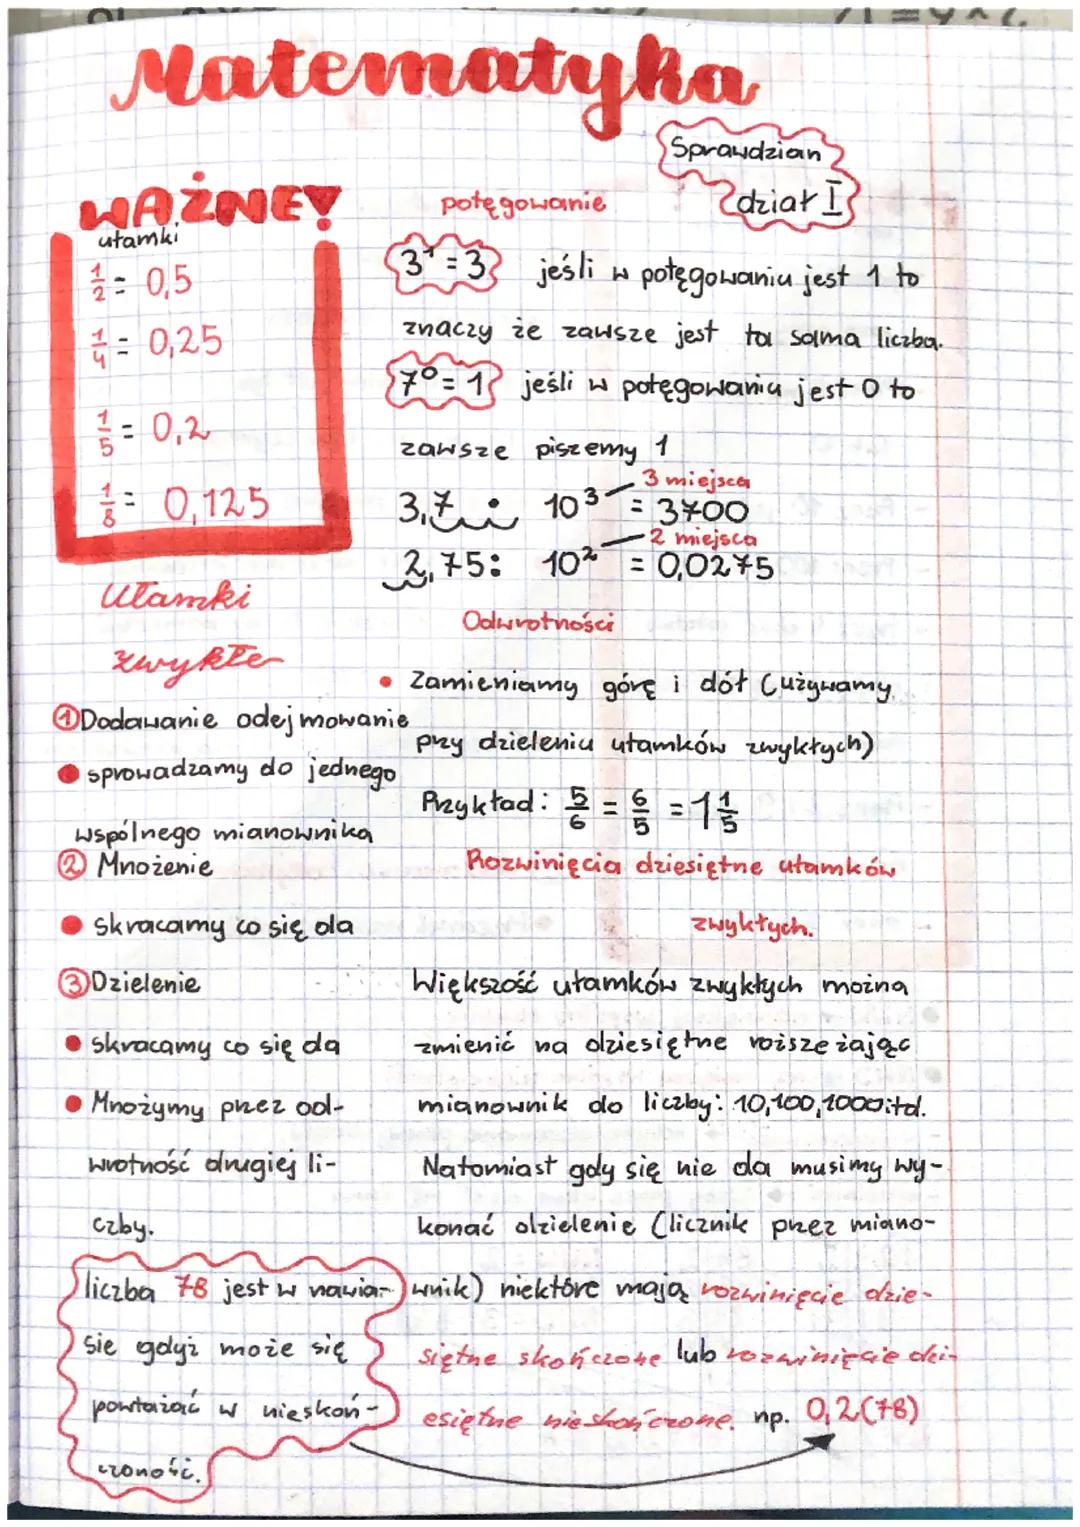 Matematyka
Sprawdzian
dział I
WAŻNE!
ułamki
1/2 = 0,5
1/4 = 0,25
1/5 = 0,2
1/8 = 0,125
potęgowanie
3¹ = 3 jeśli w potęgowaniu jest 1 to
znaczy że zawsze jest ta sama liczba.
7⁰ = 1 jeśli w potęgowaniu jest 0 to
zawsze piszemy 1
3 miejsca
3,7 · 10³ = 3700
2 miejsca
2,75 : 10² = 0,0275
Ułamki
zwykłe
①Dodawanie odejmowanie
sprowadzamy do jednego
wspólnego mianownika
② Mnożenie
skracamy co się da
③Dzielenie
skracamy co się da
Mnożymy przez od-
wrotność drugiej li-
czby.
Odwrotności
Zamieniamy górę i dół (używamy
przy dzieleniu ułamków zwykłych)
Przykład: 5/6 = 6/5 = 1 1/5
Rozwinięcia dziesiętne ułamków
zwykłych.
Większość ułamków zwykłych można
zmienić na dziesiętne rozszeżając
mianownik do liczby: 10,100,1000itd.
Natomiast gdy się nie da musimy wy-
konać dzielenie (licznik przez miano-
wnik) niektóre mają rozwinięcie dzie-
siętne skończone lub rozwinięcie dzi-
esiętne nieskończone. np. 0,2(78)
liczba 78 jest w nawia-
sie gdyż może się
powtażać w nieskoń-
czoność.